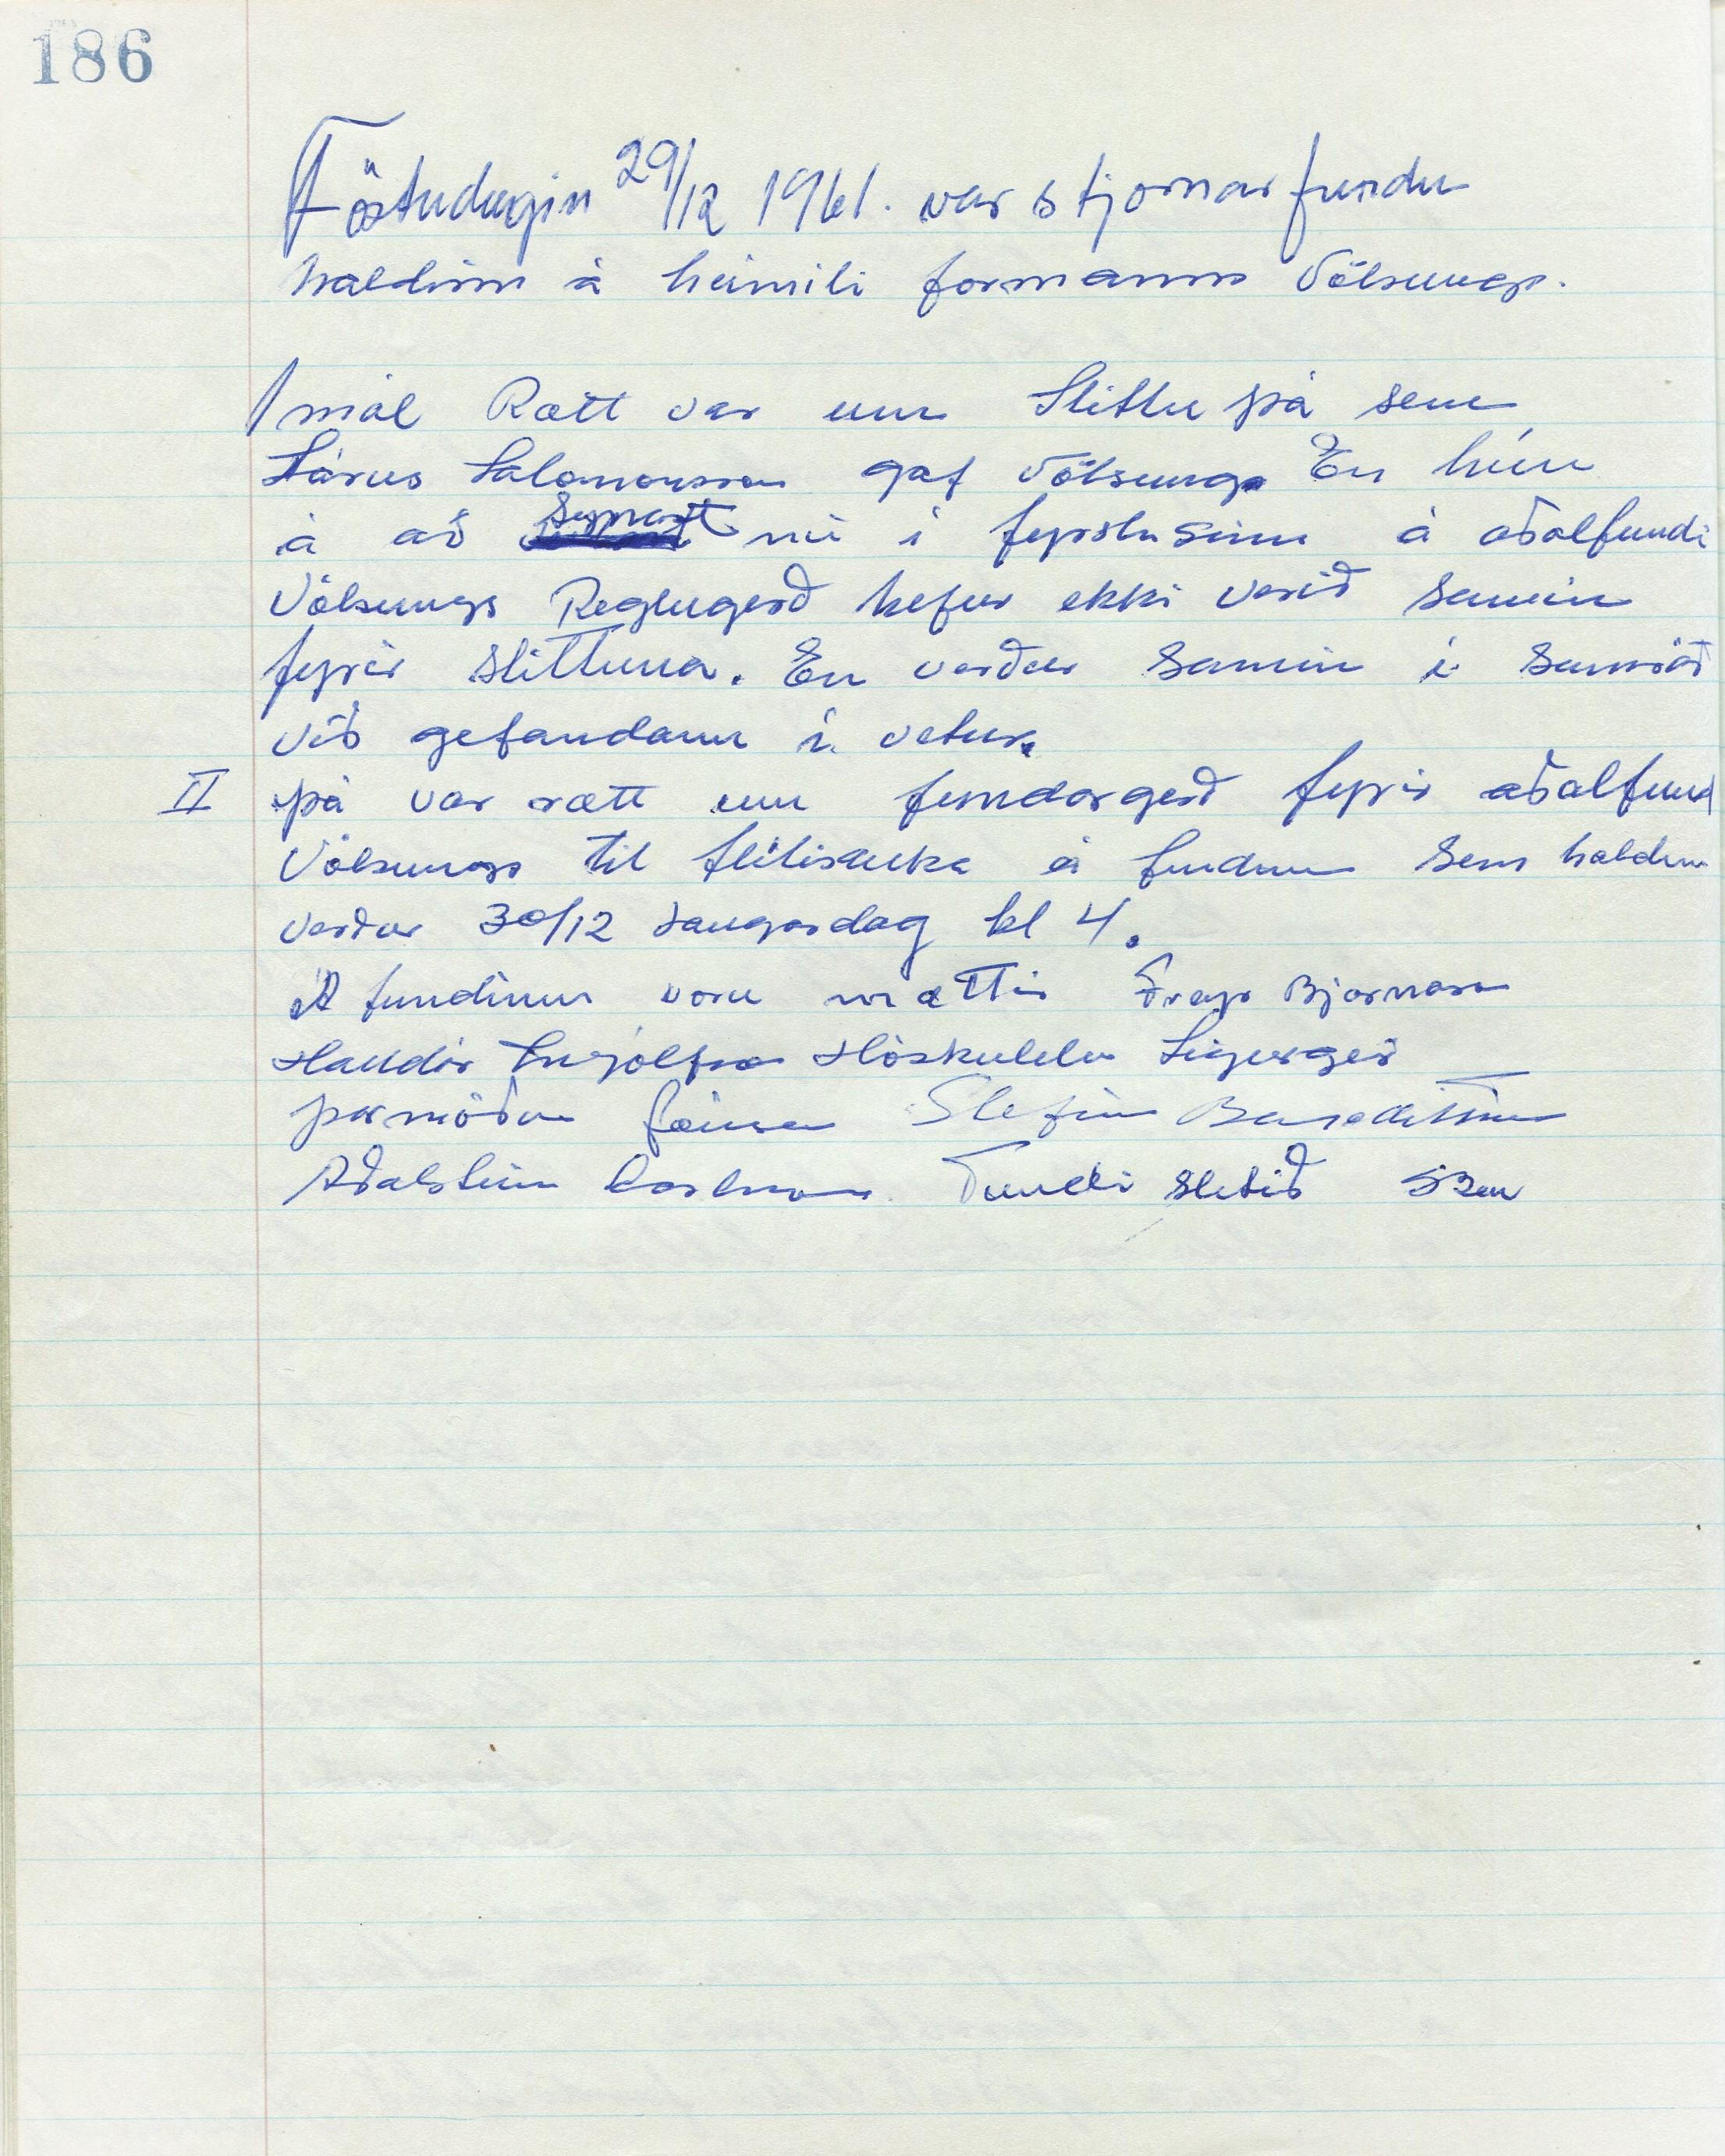 186
Föstudagin 29/12 1961. var stjornarfundur
haldinn á heimili formanns Völsungs.
1 mál Rætt var um Stittu þá sem
Lárus Salomonsson gaf Völsungs En hún
á að Synast nú í fyrstusinn á aðalfundi
Völsungs Reglugerð hefur ekki verið samin
fyrir stittuna. En verður samin í samráð
við gefandann í vetur.
II þá var rætt um fundargerð fyrir aðalfund
Völsungs til flítisauka á fundinn sem haldinn
verður 30/12 Laugardag kl 4.
Á fundinum voru mættir Freyr Bjarnason
Halldór Ingólfson Höskuldur Sigurgeir
Þormóður Jónsson Stefán Benediktsson
Aðalsteinn Karlsson. Fundi slitið